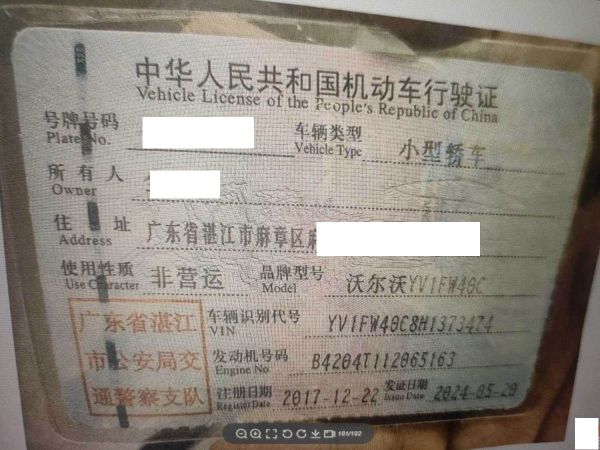 中华人民共和国机动车行驶证
Vehicle License of the People's Republic of China
号牌号码 车辆类型 小型轿车
Plate No. Vehicle Type
所有人
Owner
住址 广东省湛江市麻章区麻
Address
使用性质 非营运 品牌型号 沃尔沃YV1FW40C
Use Character Model
广东省湛江 车辆识别代号 YV1FW40C8H1373474
VIN
市公安局交 发动机号码 B4204T112065163
Engine No.
通警察支队 注册日期 2017-12-22 发证日期 2024-05-20
Register Date Issue Date
181/192